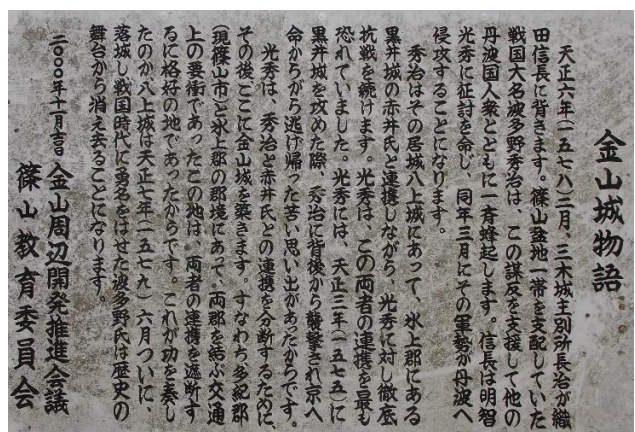 金山城物語
天正六年(一五七八)二月、三木城主別所長治が織
田信長に背きます。篠山盆地一帯を支配していた
戦国大名波多野秀治は、この謀反を支援して他の
丹波国人衆とともに一斉蜂起します。信長は明智
光秀に征討を命じ、同年三月にその軍勢が丹波へ
侵攻することになります。
秀治はその居城八上城にあって、氷上郡にある
黒井城の赤井氏と連携しながら、光秀に対し徹底
抗戦を続けます。光秀は、この両者の連携を最も
恐れていました。光秀には、天正三年(一五七五)に
黒井城を攻めた際、秀治に背後から襲撃され京へ
命からがら逃げ帰った苦い思い出があったからです。
光秀は、秀治と赤井氏との連携を分断するために
その後ここに金山城を築きます。すなわち多紀郡
(現篠山市)と氷上郡の郡境にあって、両郡を結ぶ交通
上の要衝であったこの地は、両者の連携を遮断す
るに格好の地であったからです。これが功を奏し
たのか八上城は天正七年(一五七九)六月ついに、
落城し戦国時代に勇名をはせた波多野氏は歴史の
舞台から消え去ることになります。
二〇〇〇年十一月吉日 金山周辺開発推進会議
篠山教育委員会